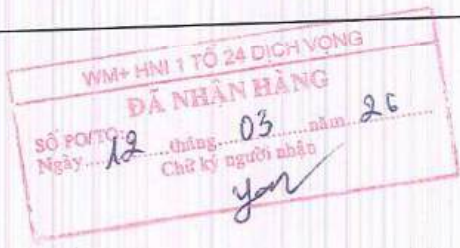 WM+ HNI 1 TỔ 24 DỊCH VỌNG
ĐÃ NHẬN HÀNG
SỐ PO/TO:
Ngày 12 tháng 03 năm 26
Chữ ký người nhận